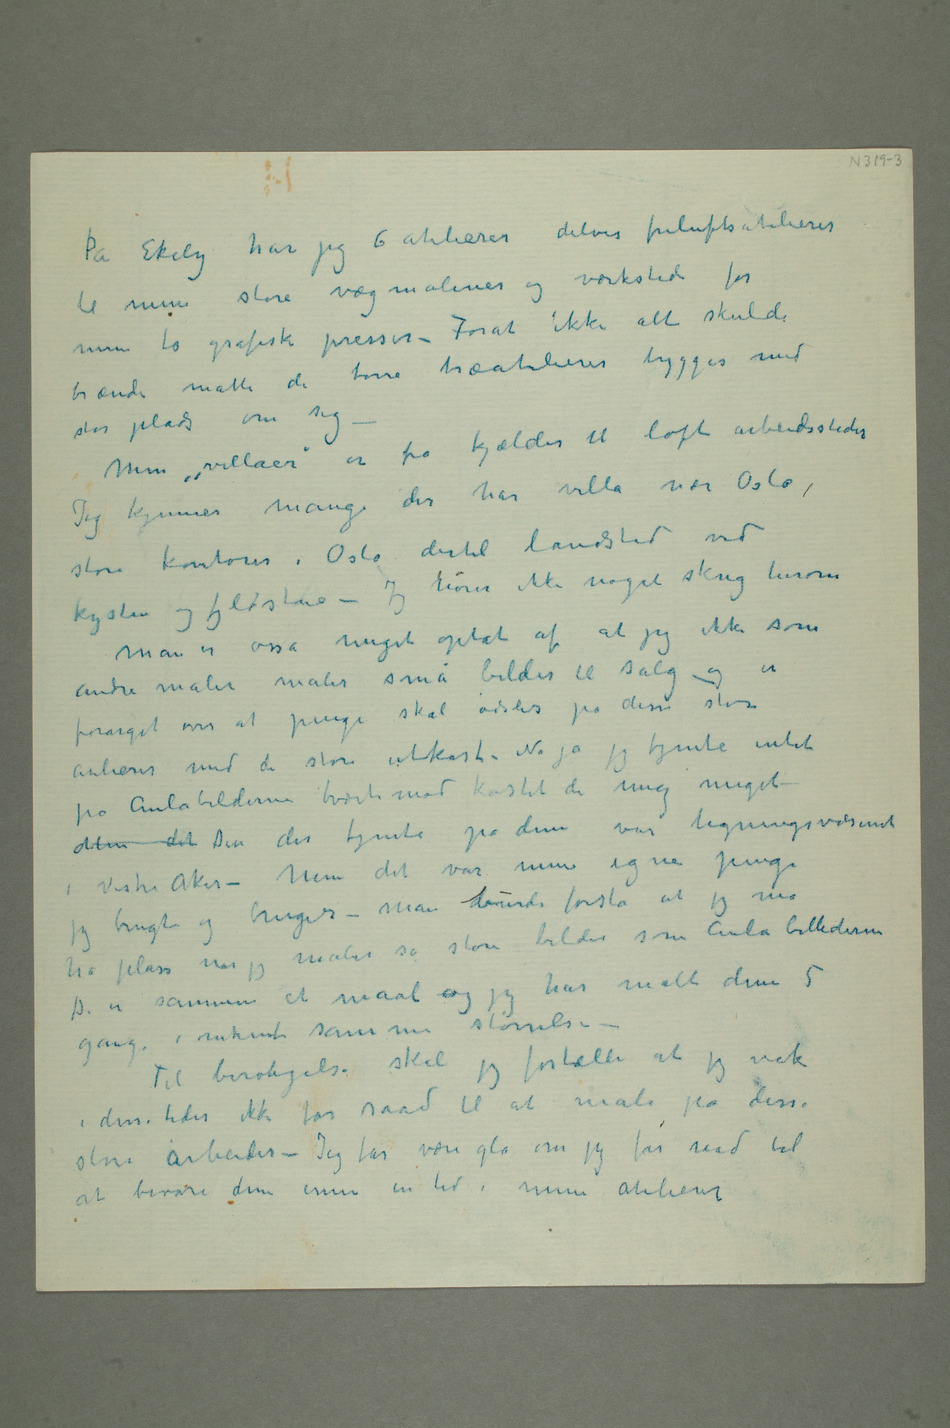 N 319-3
På Ekely har jeg 6 atelierer delvis friluftsatelierer
til mine store vægmalerier og værksteder for
mine to grafiske presser – Forat ikke alt skulde
brænde måtte de tørre træatelierer bygges med
stor plads om sig –
Mine „villaer“ er fra kjælder til loft arbeidssteder
Jeg kjenner mange der har villa nær Oslo,
store kontorer i Oslo dertil landsted ved
kysten og fjeldstue – Jeg hører ikke noget skrig herom
Man er også meget optat af at jeg ikke som
andre maler maler små bilder til salg – og er
forarget over at penge skal ødsles på disse store
atelierer med de store utkast. Nå ja jeg tjente intet
på Aulabilderne tværtimod kostet de mig meget –
Men det Den der tjente på dem var ligningsvæsenet
i Vestre Aker – Men det var mine egne penge
jeg brugte og bruger – Man burde forstå at jeg må
ha plass når jeg maler så store bilder som Aulabillederne
De er sammen et maal og jeg har malt dem 5
gange i omtrent samme størrelse –
Til beroligelse skal jeg fortælle at jeg nok
i disse tider ikke får raad til at male på disse
store arbeider – Jeg får være gla om jeg får raad til
at bevare dem ennu en tid i mine atelierer